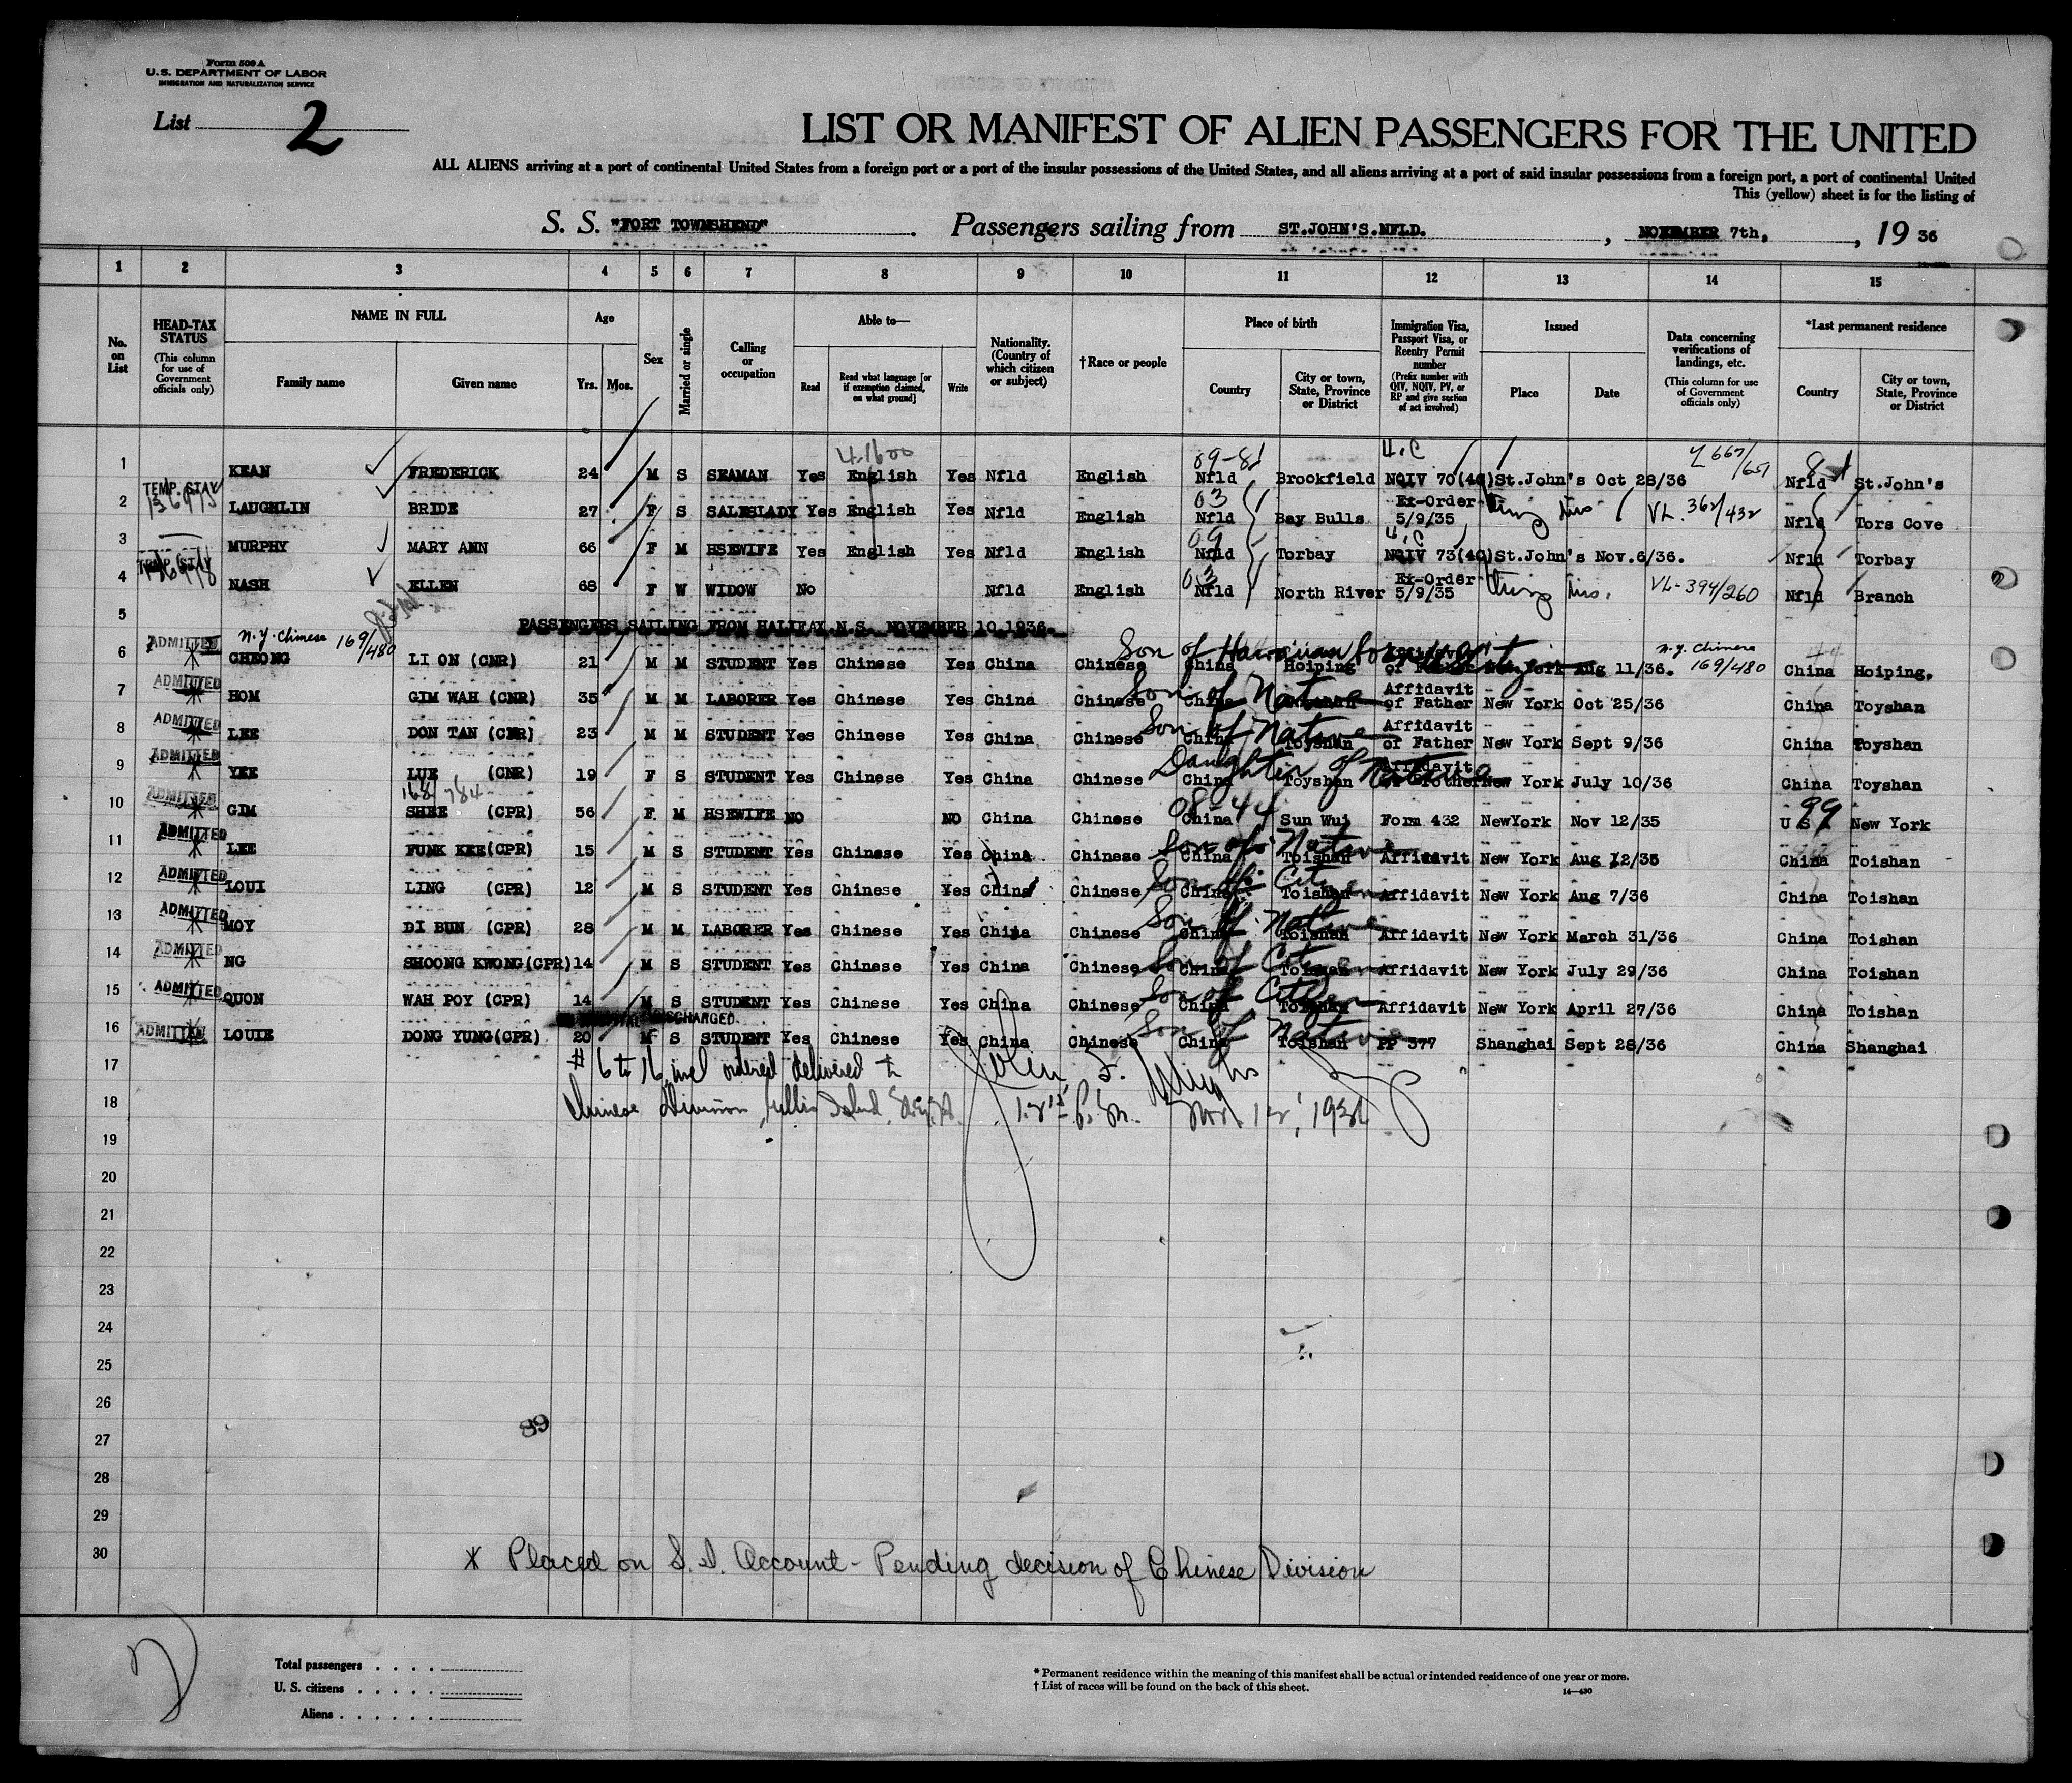 Form 500 A
U. S. DEPARTMENT OF LABOR
IMMIGRATION AND NATURALIZATION SERVICE
List 2
LIST OR MANIFEST OF ALIEN PASSENGERS FOR THE UNITED
ALL ALIENS arriving at a port of continental United States from a foreign port or a port of the insular possessions of the United States, and all aliens arriving at a port of said insular possessions from a foreign port, a port of continental United
This (yellow) sheet is for the listing of
S. S. "FORT TOWNSHEND" . Passengers sailing from ST.JOHN'S.NFLD. , NOVEMBER 7th, , 19 36
1 2 3 4 5 6 7 8 9 10 11 12 13 14 15
No. on List
HEAD-TAX STATUS (This column for use of Government officials only)
NAME IN FULL Family name Given name
Age Yrs. Mos.
Sex
Married or single
Calling or occupation
Able to— Read Read what language [or if exemption claimed, on what ground] Write
Nationality. (Country of which citizen or subject)
†Race or people
Place of birth Country City or town, State, Province or District
Immigration Visa, Passport Visa, or Reentry Permit number (Prefix number with QIV, NQIV, PV, or RP and give section of act involved)
Issued Place Date
Data concerning verifications of landings, etc. (This column for use of Government officials only)
*Last permanent residence Country City or town, State, Province or District
4-1600 09-81 4.C
1 KEAN FREDERICK 24 M S SEAMAN Yes English Yes Nfld English Nfld Brookfield NQIV 70(4C) St.John's Oct 28/36 Nfld St.John's
TEMP. STAY 03 Ex-Order
2 LAUGHLIN BRIDE 27 F S SALESLADY Yes English Yes Nfld English Nfld Bay Bulls 5/9/35 VL. 362/432 Nfld Tors Cove
09 4.C
3 MURPHY MARY ANN 66 F M HSEWIFE Yes English Yes Nfld English Nfld Torbay NQIV 73(4C) St.John's Nov.6/36. Nfld Torbay
TEMP. STAY 03 Ex-Order
4 NASH ELLEN 68 F W WIDOW No Nfld English Nfld North River 5/9/35 VL-394/260 Nfld Branch
5 PASSENGERS SAILING FROM HALIFAX.N.S. NOVEMBER 10.1936.
ADMITTED N.Y. Chinese 169/480 Son of Hawaiian born N.Y. Chinese
6 CHEONG LI ON (CNR) 21 M M STUDENT Yes Chinese Yes China Chinese China Hoiping of New York Aug 11/36. 169/480 China Hoiping.
ADMITTED Son of Native Affidavit
7 HOM GIM WAH (CNR) 35 M M LABORER Yes Chinese Yes China Chinese China of Father New York Oct 25/36 China Toyshan
ADMITTED Son of Native Affidavit
8 LEE DON TAN (CNR) 23 M M STUDENT Yes Chinese Yes China Chinese China Toyshan of Father New York Sept 9/36 China Toyshan
ADMITTED Daughter of Native Affidavit
9 YEE LUE (CNR) 19 F S STUDENT Yes Chinese Yes China Chinese China Toyshan New York July 10/36 China Toyshan
ADMITTED 168/784 08-44 99
10 GIM SHEE (CPR) 56 F M HSEWIFE NO NO China Chinese China Sun Wui Form 432 NewYork Nov 12/35 U S A New York
ADMITTED Son of Native
11 LEE FUNK KEE(CPR) 15 M S STUDENT Yes Chinese Yes China Chinese China Toishan Affidavit New York Aug 12/35 China Toishan
ADMITTED Son of Citizen
12 LOUI LING (CPR) 12 M S STUDENT Yes Chinese Yes China Chinese China Toishan Affidavit New York Aug 7/36 China Toishan
ADMITTED Son of Native
13 MOY DI BUN (CPR) 28 M M LABORER Yes Chinese Yes China Chinese China Toishan Affidavit New York March 31/36 China Toishan
ADMITTED Son of Citizen
14 NG SHOONG KWONG(CPR) 14 M S STUDENT Yes Chinese Yes China Chinese China Toishan Affidavit New York July 29/36 China Toishan
ADMITTED Son of Citizen
15 QUON WAH POY (CPR) 14 M S STUDENT Yes Chinese Yes China Chinese China Toishan Affidavit New York April 27/36 China Toishan
DISCHARGED
ADMITTED Son of Native
16 LOUIE DONG YUNG(CPR) 20 M S STUDENT Yes Chinese Yes China Chinese China Toishan PP 377 Shanghai Sept 28/36 China Shanghai
17 # 6 to 16 incl ordered delivered to John
18 Chinese Division, Ellis Island P.M. Nov. 12, 1936
19
20
21
22
23
24
25
26
27 89
28
29
30 * Placed on S.I. Account - Pending decision of Chinese Division
Total passengers . . . .
U. S. citizens . . . . .
Aliens . . . . . .
* Permanent residence within the meaning of this manifest shall be actual or intended residence of one year or more.
† List of races will be found on the back of this sheet.
14—430